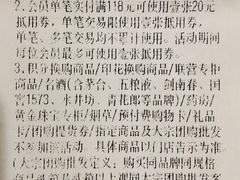 2.会员单笔实付满118元可使用壹张20元
抵用券,单笔交易限使用壹张抵用券,
单笔、多笔交易均不累计使用。活动期间
每位会员最多可使用壹张抵用券。
3.积分换购商品/印花换购商品/联营专柜
商品/名酒(含茅台、五粮液、剑南春、国
窖1573、水井坊、青花郎等品牌)/药房/
黄金珠宝专柜/烟草/预付费购物卡/礼品
卡/团购提货券/指定商品及大宗团购批发
不参加活动。具体商品以门店告示为准
(大宗团购批发定义:购买同品牌同规格
商品